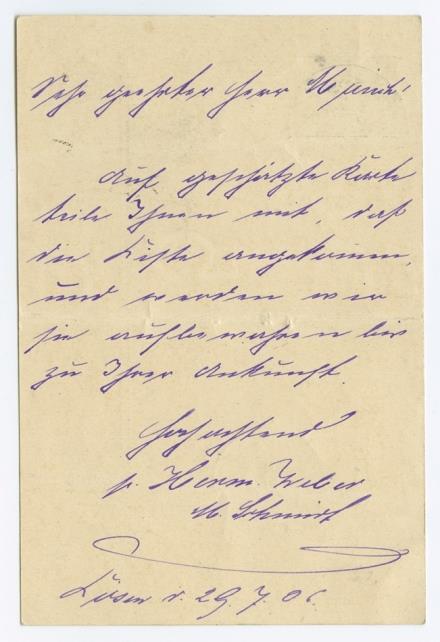 Sehr geehrter Herr
Auf geschätzte Karte
teile Ihnen mit, daß
die Kiste angekommen,
und werden wir
sie aufbewahren bis
zu Ihrer Ankunft.
Hochachtend
p. Herm. Weber
M. Schmidt
Kösen d. 29.7.06.